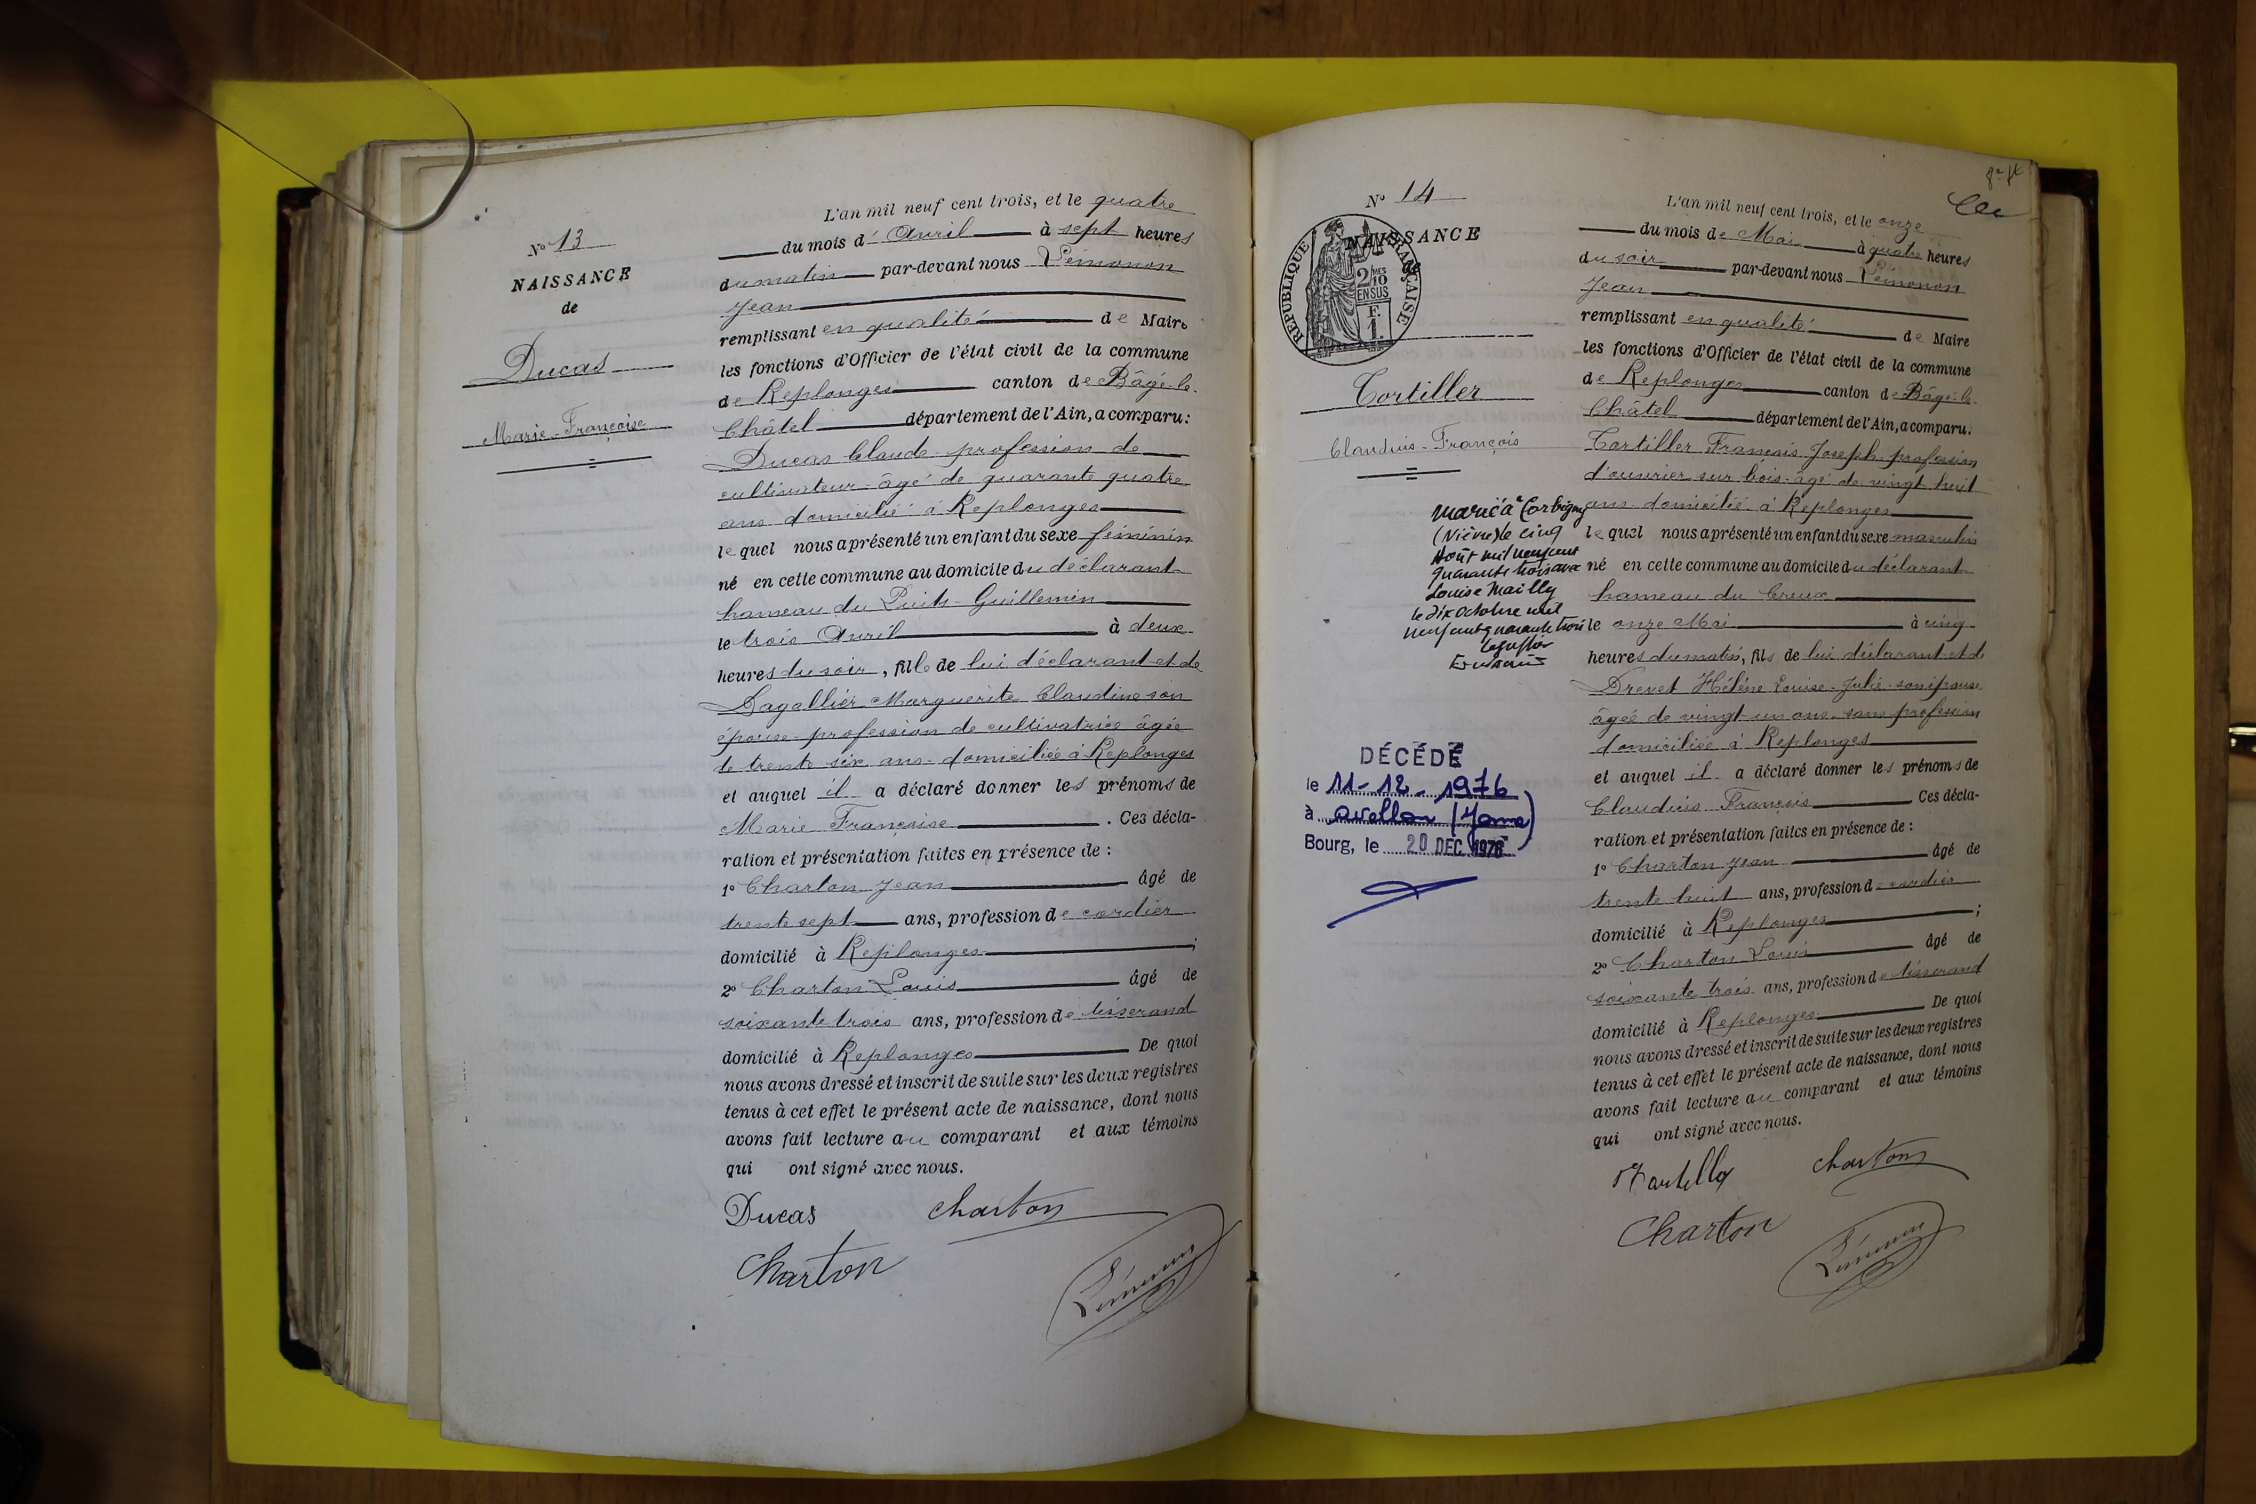 N° 13
NAISSANCE
de
Ducas
Marie-Françoise
L'an mil neuf cent trois, et le quatre
du mois d' Avril à sept heures
du matin par-devant nous Lémonon
Jean
remplissant en qualité de Maire
les fonctions d'Officier de l'état civil de la commune
de Replonges canton de Bâgé-le-
Châtel département de l'Ain, a comparu:
Ducas Claude profession de
cultivateur âgé de quarante quatre
ans domicilié à Replonges
lequel nous a présenté un enfant du sexe féminin
né en cette commune au domicile du déclarant
hameau du Puits-Guillemin
le trois Avril à deux
heures du soir, fille de lui déclarant et de
Pagellier Marguerite Claudine son
épouse profession de cultivatrice âgée
de trente six ans domiciliée à Replonges
et auquel il a déclaré donner les prénoms de
Marie Françoise. Ces décla-
ration et présentation faites en présence de :
1° Charton Jean âgé de
trente sept ans, profession de cordier
domicilié à Replonges ;
2° Charton Louis âgé de
soixante trois ans, profession de tisserand
domicilié à Replonges De quoi
nous avons dressé et inscrit de suite sur les deux registres
tenus à cet effet le présent acte de naissance, dont nous
avons fait lecture au comparant et aux témoins
qui ont signé avec nous.
Ducas Charton
Charton Lémonon
N° 14
NAISSANCE
de
RÉPUBLIQUE FRANÇAISE
2/10 MES
EN SUS
F.
1.
Tortiller
Claudius-François
marié à Corbigny
(Nièvre) le cinq
Août mil neuf cent
quarante trois avec
Louise Mailly
le dix octobre mil
neuf cent quarante trois
DÉCÉDÉ
le 11-12-1976
à avallon (Yonne)
Bourg, le 20 DEC 1976
L'an mil neuf cent trois, et le onze
du mois de Mai à quatre heures
du soir par-devant nous Lémonon
Jean
remplissant en qualité de Maire
les fonctions d'Officier de l'état civil de la commune
de Replonges canton de Bâgé-le-
Châtel département de l'Ain, a comparu:
Tortiller François Joseph profession
d'ouvrier sur bois âgé de vingt huit
ans domicilié à Replonges
lequel nous a présenté un enfant du sexe masculin
né en cette commune au domicile du déclarant
hameau du Creux
le onze Mai à cinq
heures du matin, fils de lui déclarant et de
Drevet Hélène Louise-Julie son épouse
âgée de vingt un ans sans profession
domiciliée à Replonges
et auquel il a déclaré donner les prénoms de
Claudius François Ces décla-
ration et présentation faites en présence de :
1° Charton Jean âgé de
trente huit ans, profession de cordier
domicilié à Replonges ;
2° Charton Louis âgé de
soixante trois ans, profession de tisserand
domicilié à Replonges De quoi
nous avons dressé et inscrit de suite sur les deux registres
tenus à cet effet le présent acte de naissance, dont nous
avons fait lecture au comparant et aux témoins
qui ont signé avec nous.
Charton
Charton Lémonon